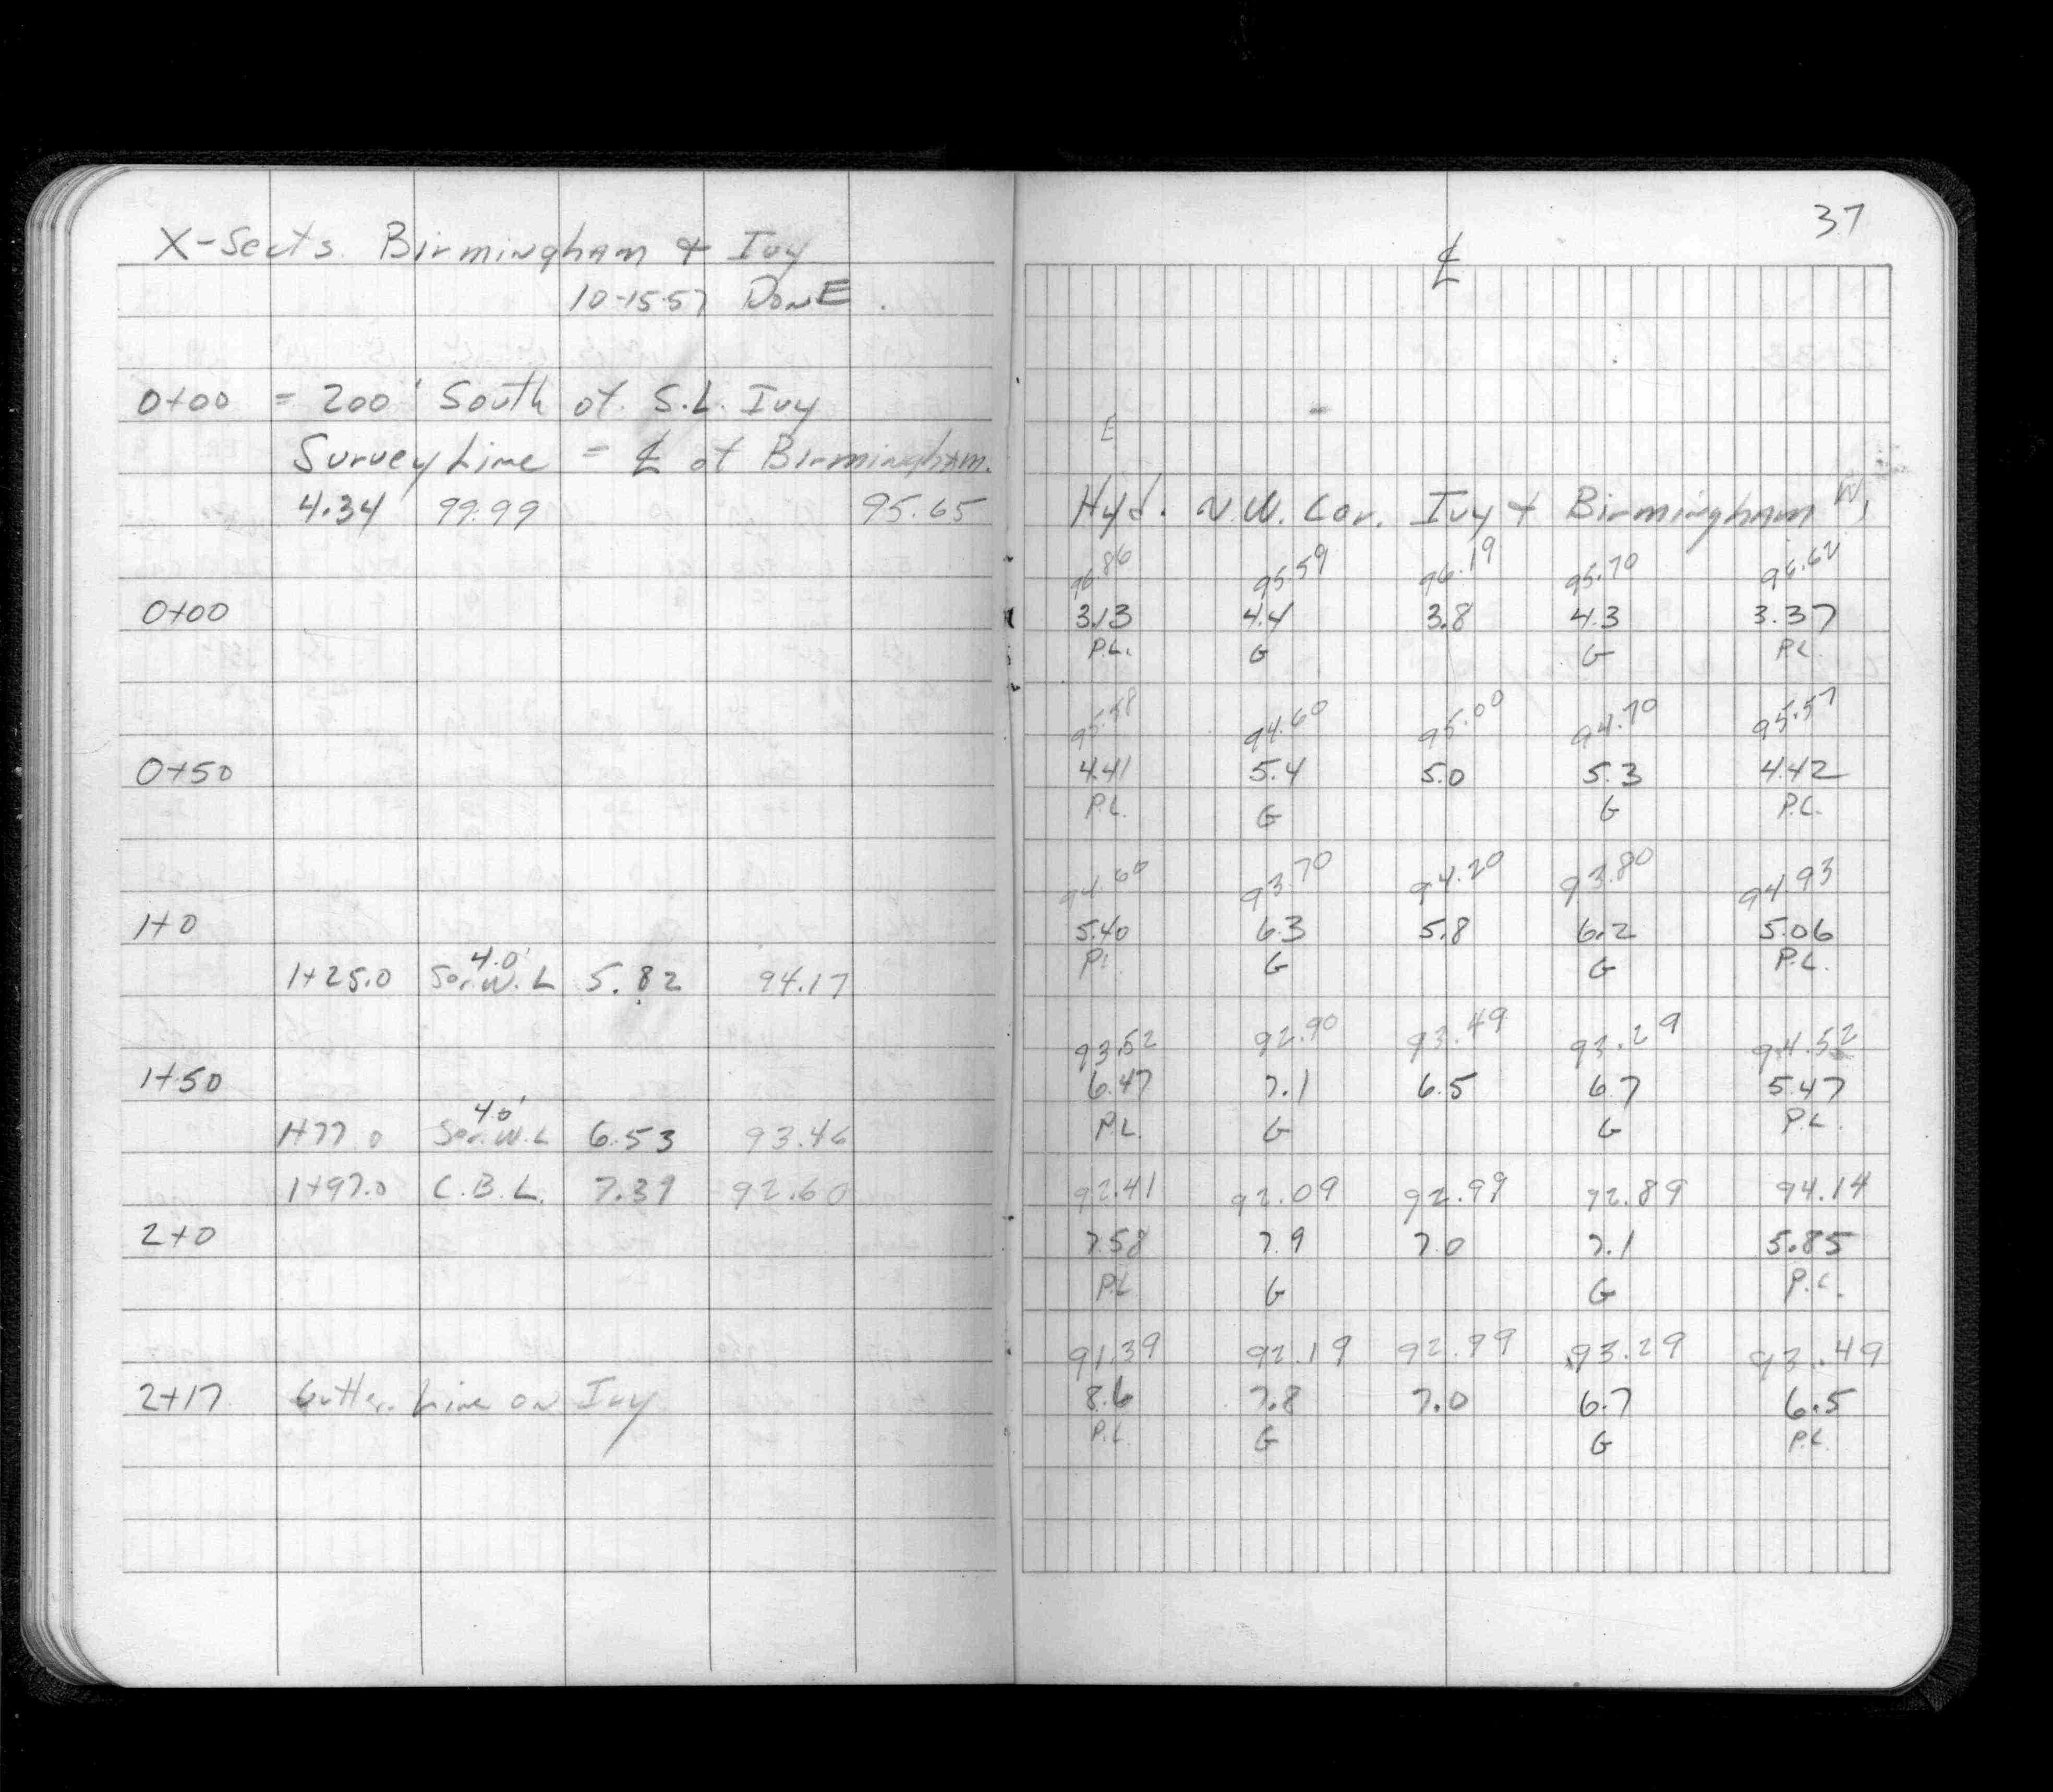 X-Sects. Birmingham & Ivy
10-15-57 DonE.
0+00 = 200' South of. S.L. Ivy
Survey Line = ℄ of Birmingham.
4.34 99.99 95.65
0+00
0+50
1+0
4.0'
1+25.0 Ser. W. L 5.82 94.17
1+50
4.0'
1+77.0 Ser. W. L 6.53 93.46
1+97.0 C.B.L. 7.39 92.60
2+0
2+17 Gutter Line on Ivy
37
℄
E
Hyd. N.W. Cor. Ivy & Birmingham W.
96.86 95.59 96.19 95.70 96.62
3.13 4.4 3.8 4.3 3.37
P.L. G G P.L.
95.58 94.60 95.00 94.70 95.57
4.41 5.4 5.0 5.3 4.42
P.L. G G P.L.
94.60 93.70 94.20 93.80 94.93
5.40 6.3 5.8 6.2 5.06
P.L. G G P.L.
93.52 92.90 93.49 93.29 94.52
6.47 7.1 6.5 6.7 5.47
P.L. G G P.L.
92.41 92.09 92.99 92.89 94.14
7.58 7.9 7.0 7.1 5.85
P.L. G G P.L.
91.39 92.19 92.99 93.29 93.49
8.6 7.8 7.0 6.7 6.5
P.L. G G P.L.